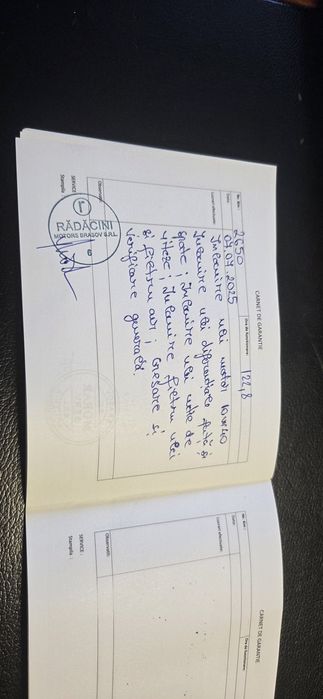 CARNET DE GARANTIE
Nr. Km : 2650
Ore de functionare: 1218
Data: 07.07.2025
Lucrari efectuate: Inlocuire ulei motor 10W40
Inlocuire ulei diferentiale fata si
spate ; Inlocuire ulei cutie de
viteze ; Inlocuire filtru ulei
si filtru aer ; Gresare si
Verificare generală
Observatii:
SERVICE :
Stampila
RĂDĂCINI
MOTORS BRASOV S.R.L.
CARNET DE GARANTIE
Nr. Km :
Ore de functionare:
Data:
Lucrari efectuate:
Observatii:
SERVICE :
Stampila